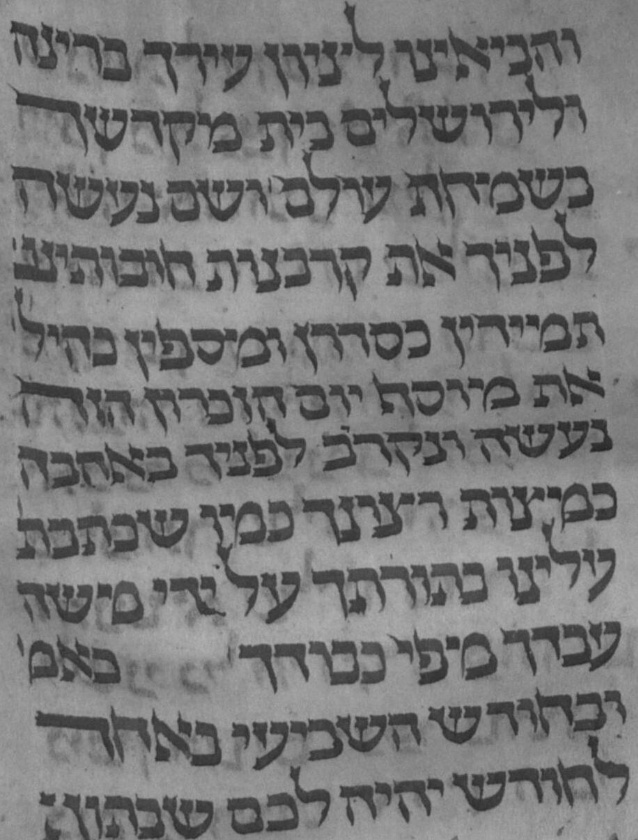 והביאינו ליציון עירך ברינה
ולירושלים בית מקדשך
בשמיחת עולם ושם נעשה
לפניך את קרבנות חובותינו
תמידין כסדרן ומוספין כהיל'
את מוסף יום הזכרון הזה
נעשה ונקרב לפניך באהבה
כמיצות רצונך כמו שכתבת
עלינו בתורתך על ידי מישה
עבדך מיפי כבודך באמ'
ובחודש השביעי באחד
לחודש יהיה לכם שבתון